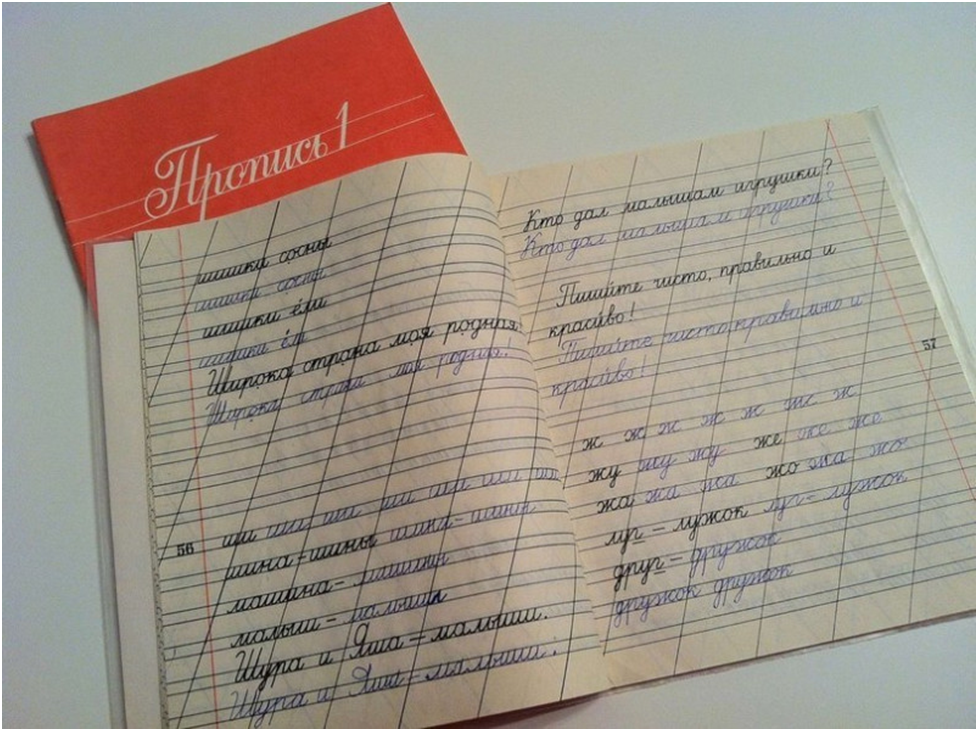 Пропись 1
шишки сосны
шишки сосны
шишки е́ли
шишки е́ли
Широка страна моя родная!
Широка страна моя родная!
56
ши ши ши ши ши ши ши
шина – шины шина – шины
машина – машины
малыш – малыши
Шура и Яша – малыши.
Шура и Яша – малыши.
Кто дал малышам игрушки?
Кто дал малышам игрушки?
Пиши́те чисто, правильно и
краси́во!
Пиши́те чисто, правильно и
краси́во!
57
ж ж ж ж ж ж ж
жу жу жу же же же
жа жа жа жо жа жо
луг – лужок луг – лужок
друг – дружок
дружок дружок